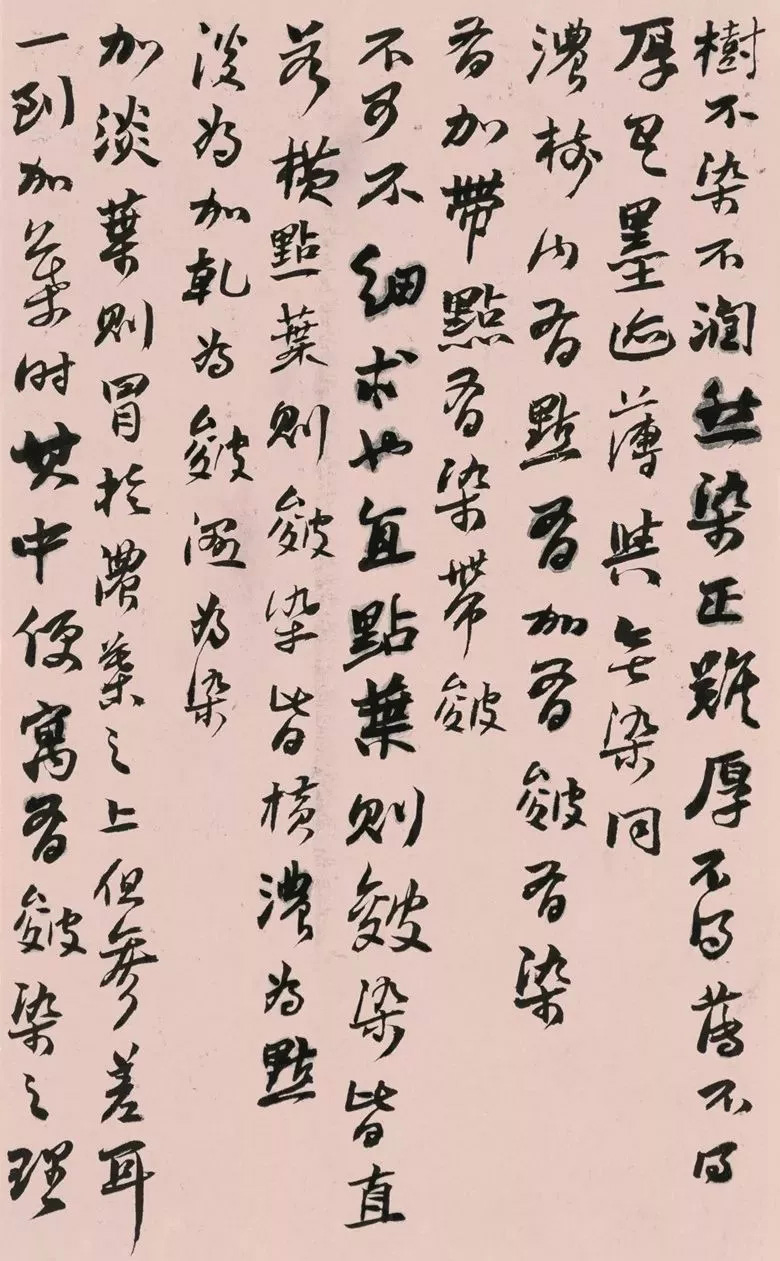 樹不染不潤然染正難厚不得薄不得
厚見墨迹薄與無染同
濃樹內有點有加有皴有染
有加帶點有染帶皴
不可不細求也直點葉則皴染皆直
若橫點葉則皴染皆橫濃為點
淡為加乾為皴濕為染
加淡葉則冒於濃葉之上但參差耳
一到加葉時其中便寓有皴染之理